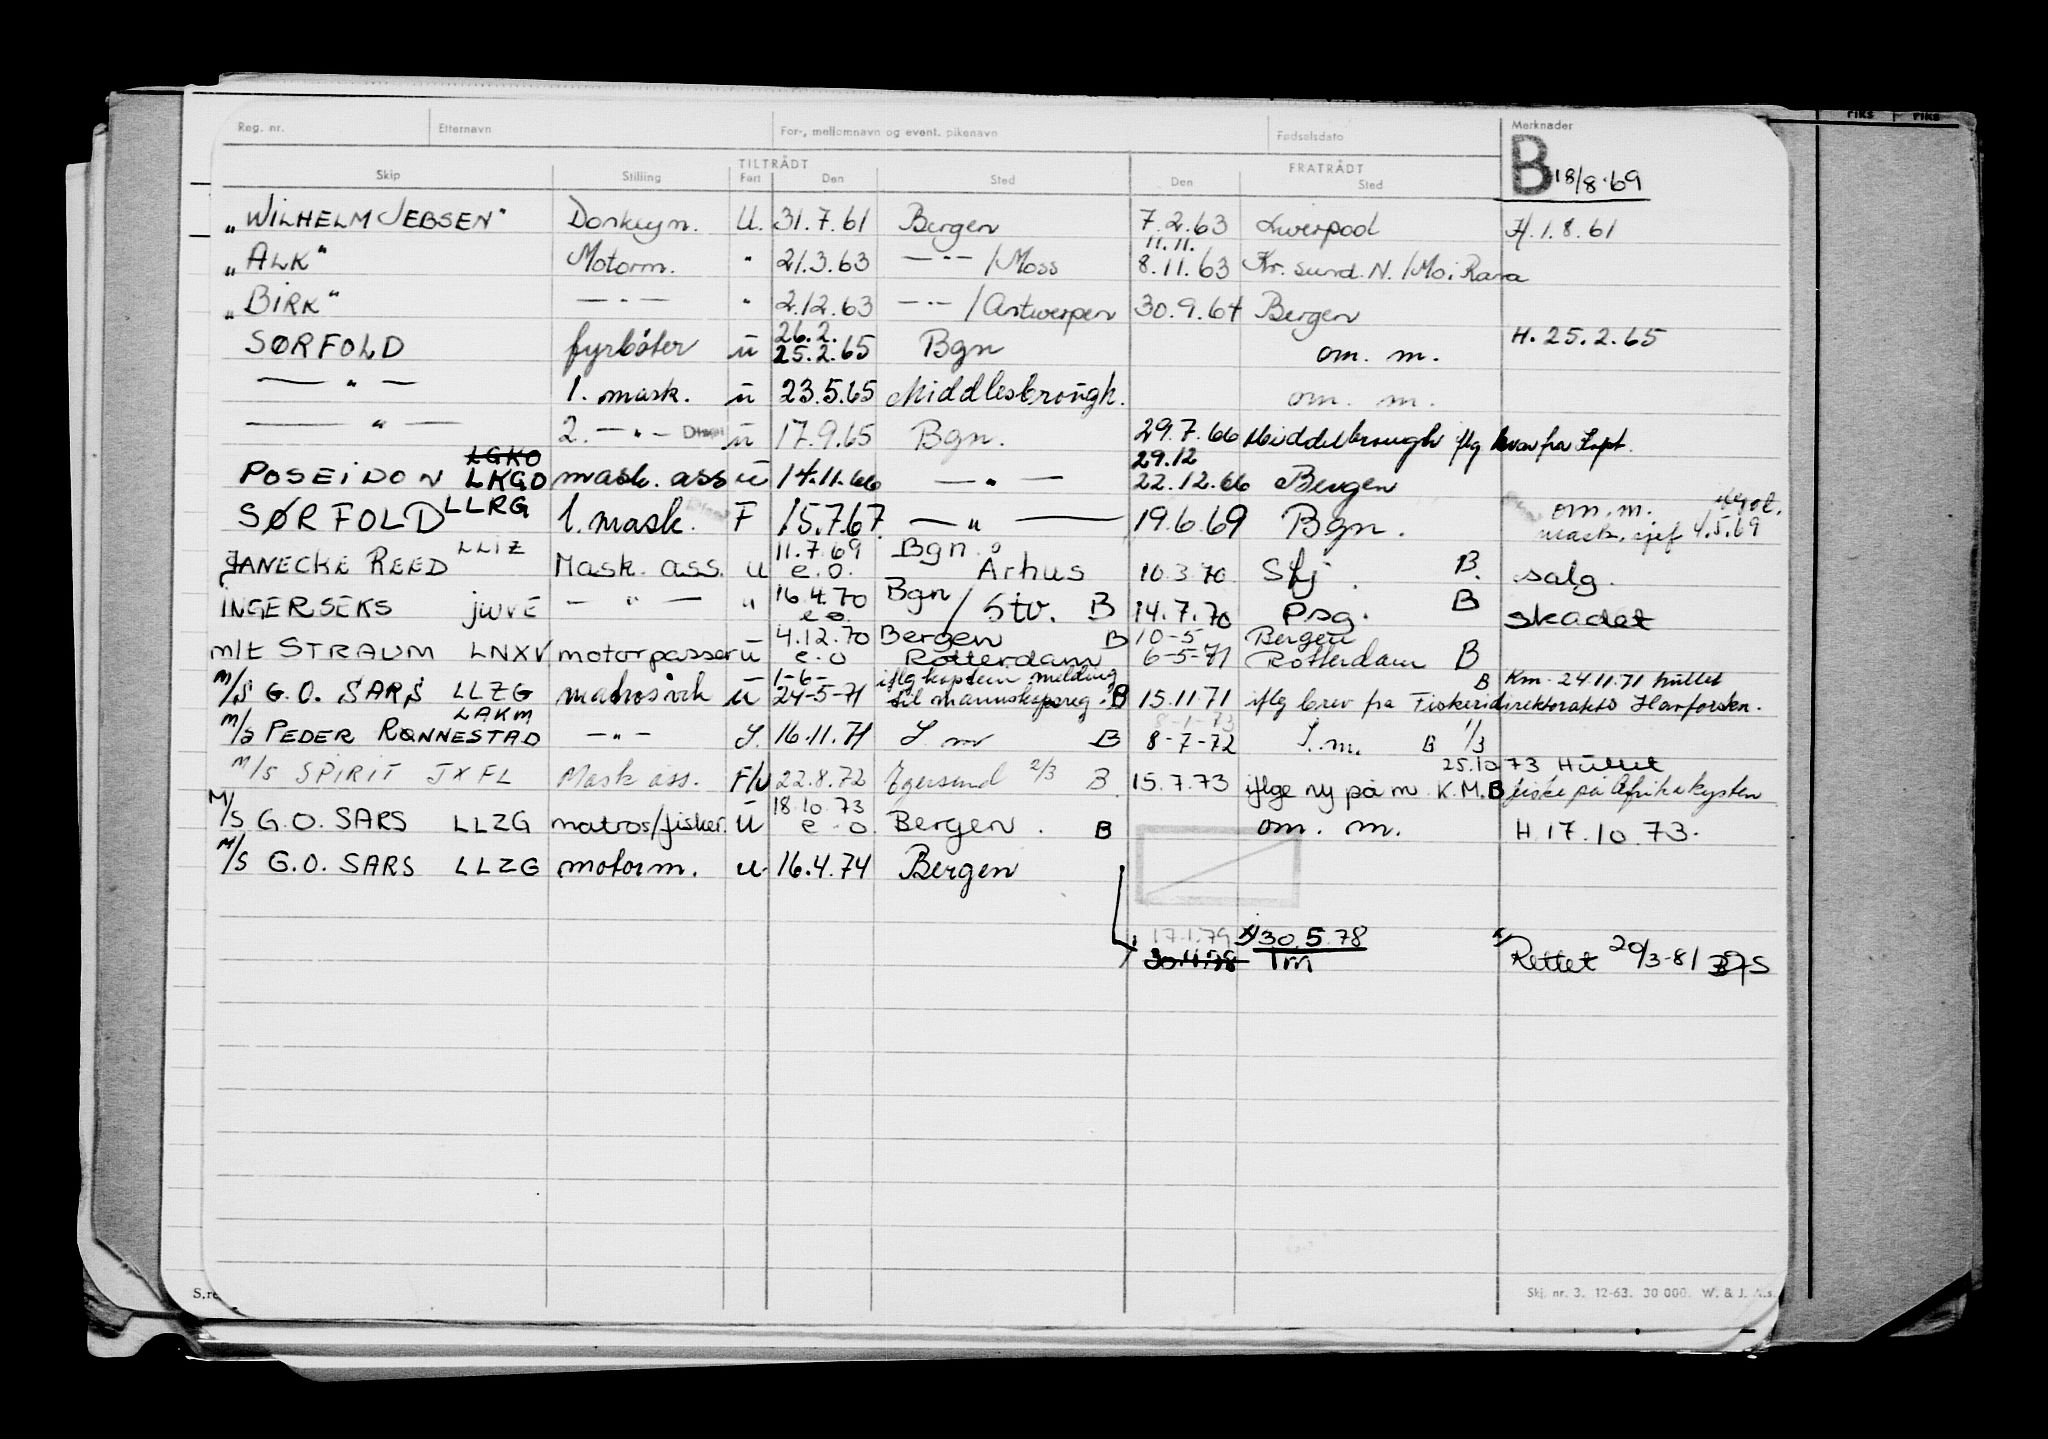 Fiks Fiks
Reg. nr. Etternavn For-, mellomnavn og event. pikenavn Fødselsdato Merknader
B 18/8-69
TILTRÅDT FRATRÅDT
Skip Stilling Fart Den Sted Den Sted
"WILHELM JEBSEN" Donkeym. U. 31.7.61 Bergen 7.2.63 Liverpool H. 1.8.61
11.11.
"ALK" Motorm. " 21.3.63 —"— /Moss 8.11.63 Kr. sund. N. /Mo i Rana
"BIRK" —"— " 2.12.63 —"— /Antwerpen 30.9.64 Bergen
26.2.
SØRFOLD fyrbøter u 25.2.65 Bgn om. m. H. 25.2.65
—"— 1. mask. u 23.5.65 Middlesbrough. om. m.
—"— 2. —"— u 17.9.65 Bgn. 29.7.66 Middelbrough iflg brev fra Kapt.
LGKO 29.12
POSEIDON LKGO mask. ass u 14.11.66 —"— 22.12.66 Bergen
SØRFOLD LLRG 1. mask. F 15.7.67. —"— 19.6.69 Bgn. om. m. mask. sjef 4.5.69
11.7.69 Bgn
JANECKE REED LLIZ Mask. ass. u e.o. Århus 10.3.70 Sfj. B. salg.
16.4.70 Bgn
INGERSEKS JWVE —"— " e.o. / Stv. B 14.7.70 Psg. B skadet
4.12.70 Bergen B 10-5 Bergen
m/t STRAUM LNXV motorpasser u e.o Rotterdam 6-5-71 Rotterdam B
1-6- iflg kaptein melding B Km. 24.11.71 hullet
M/S G.O. SARS LLZG matrosvik u 24-5-71 til mannskapsreg. B 15.11.71 iflg brev fra Fiskeridirektoratets Havforskn.
LAKM 8-1-73
M/S PEDER RØNNESTAD —"— S. 16.11.71 S. m B 8-7-72 S. m. B 1/3
25.10 73 Hullet
M/S SPIRIT JXFL Mask ass. F/U 22.8.72 Egersund 2/3 B 15.7.73 iflge ny på m. K.M. B fiske på Afrikakysten
18.10.73
M/S G.O. SARS LLZG matros/fisker. u e.o. Bergen. B om. m. H. 17.10.73.
M/S G.O. SARS LLZG motorm. u. 16.4.74 Bergen
17.1.79 x) 30.5.78
30.4.78 Im x) Rettet 20/3-81
S.re Skj. nr. 3. 12-63. 30 000. W. & J. A.s.